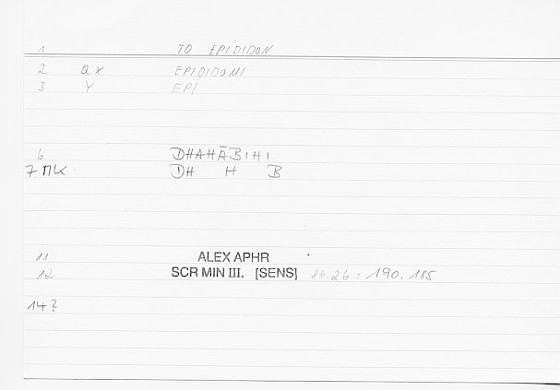 1 TO EPIDIDON
2 QX EPIDIDOMI
3 Y EPI
6 DHAHĀBIHI
7 MK DH H B
11 ALEX APHR
12 SCR MIN III. [SENS] 84.26 : 190.185
14?